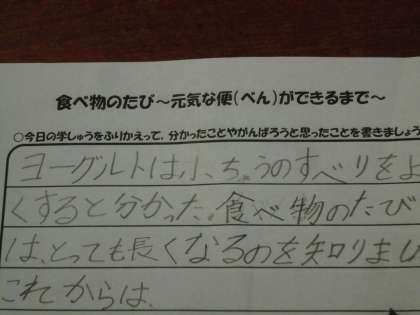 食べ物のたび～元気な便(べん)ができるまで～
○今日の学しゅうをふりかえって、分かったことやがんばろうと思ったことを書きましょう
ヨーグルトは小ちょうのすべりをよ
くすると分かった。食べ物のたび
は、とっても長くなるのを知りまし
これからは、